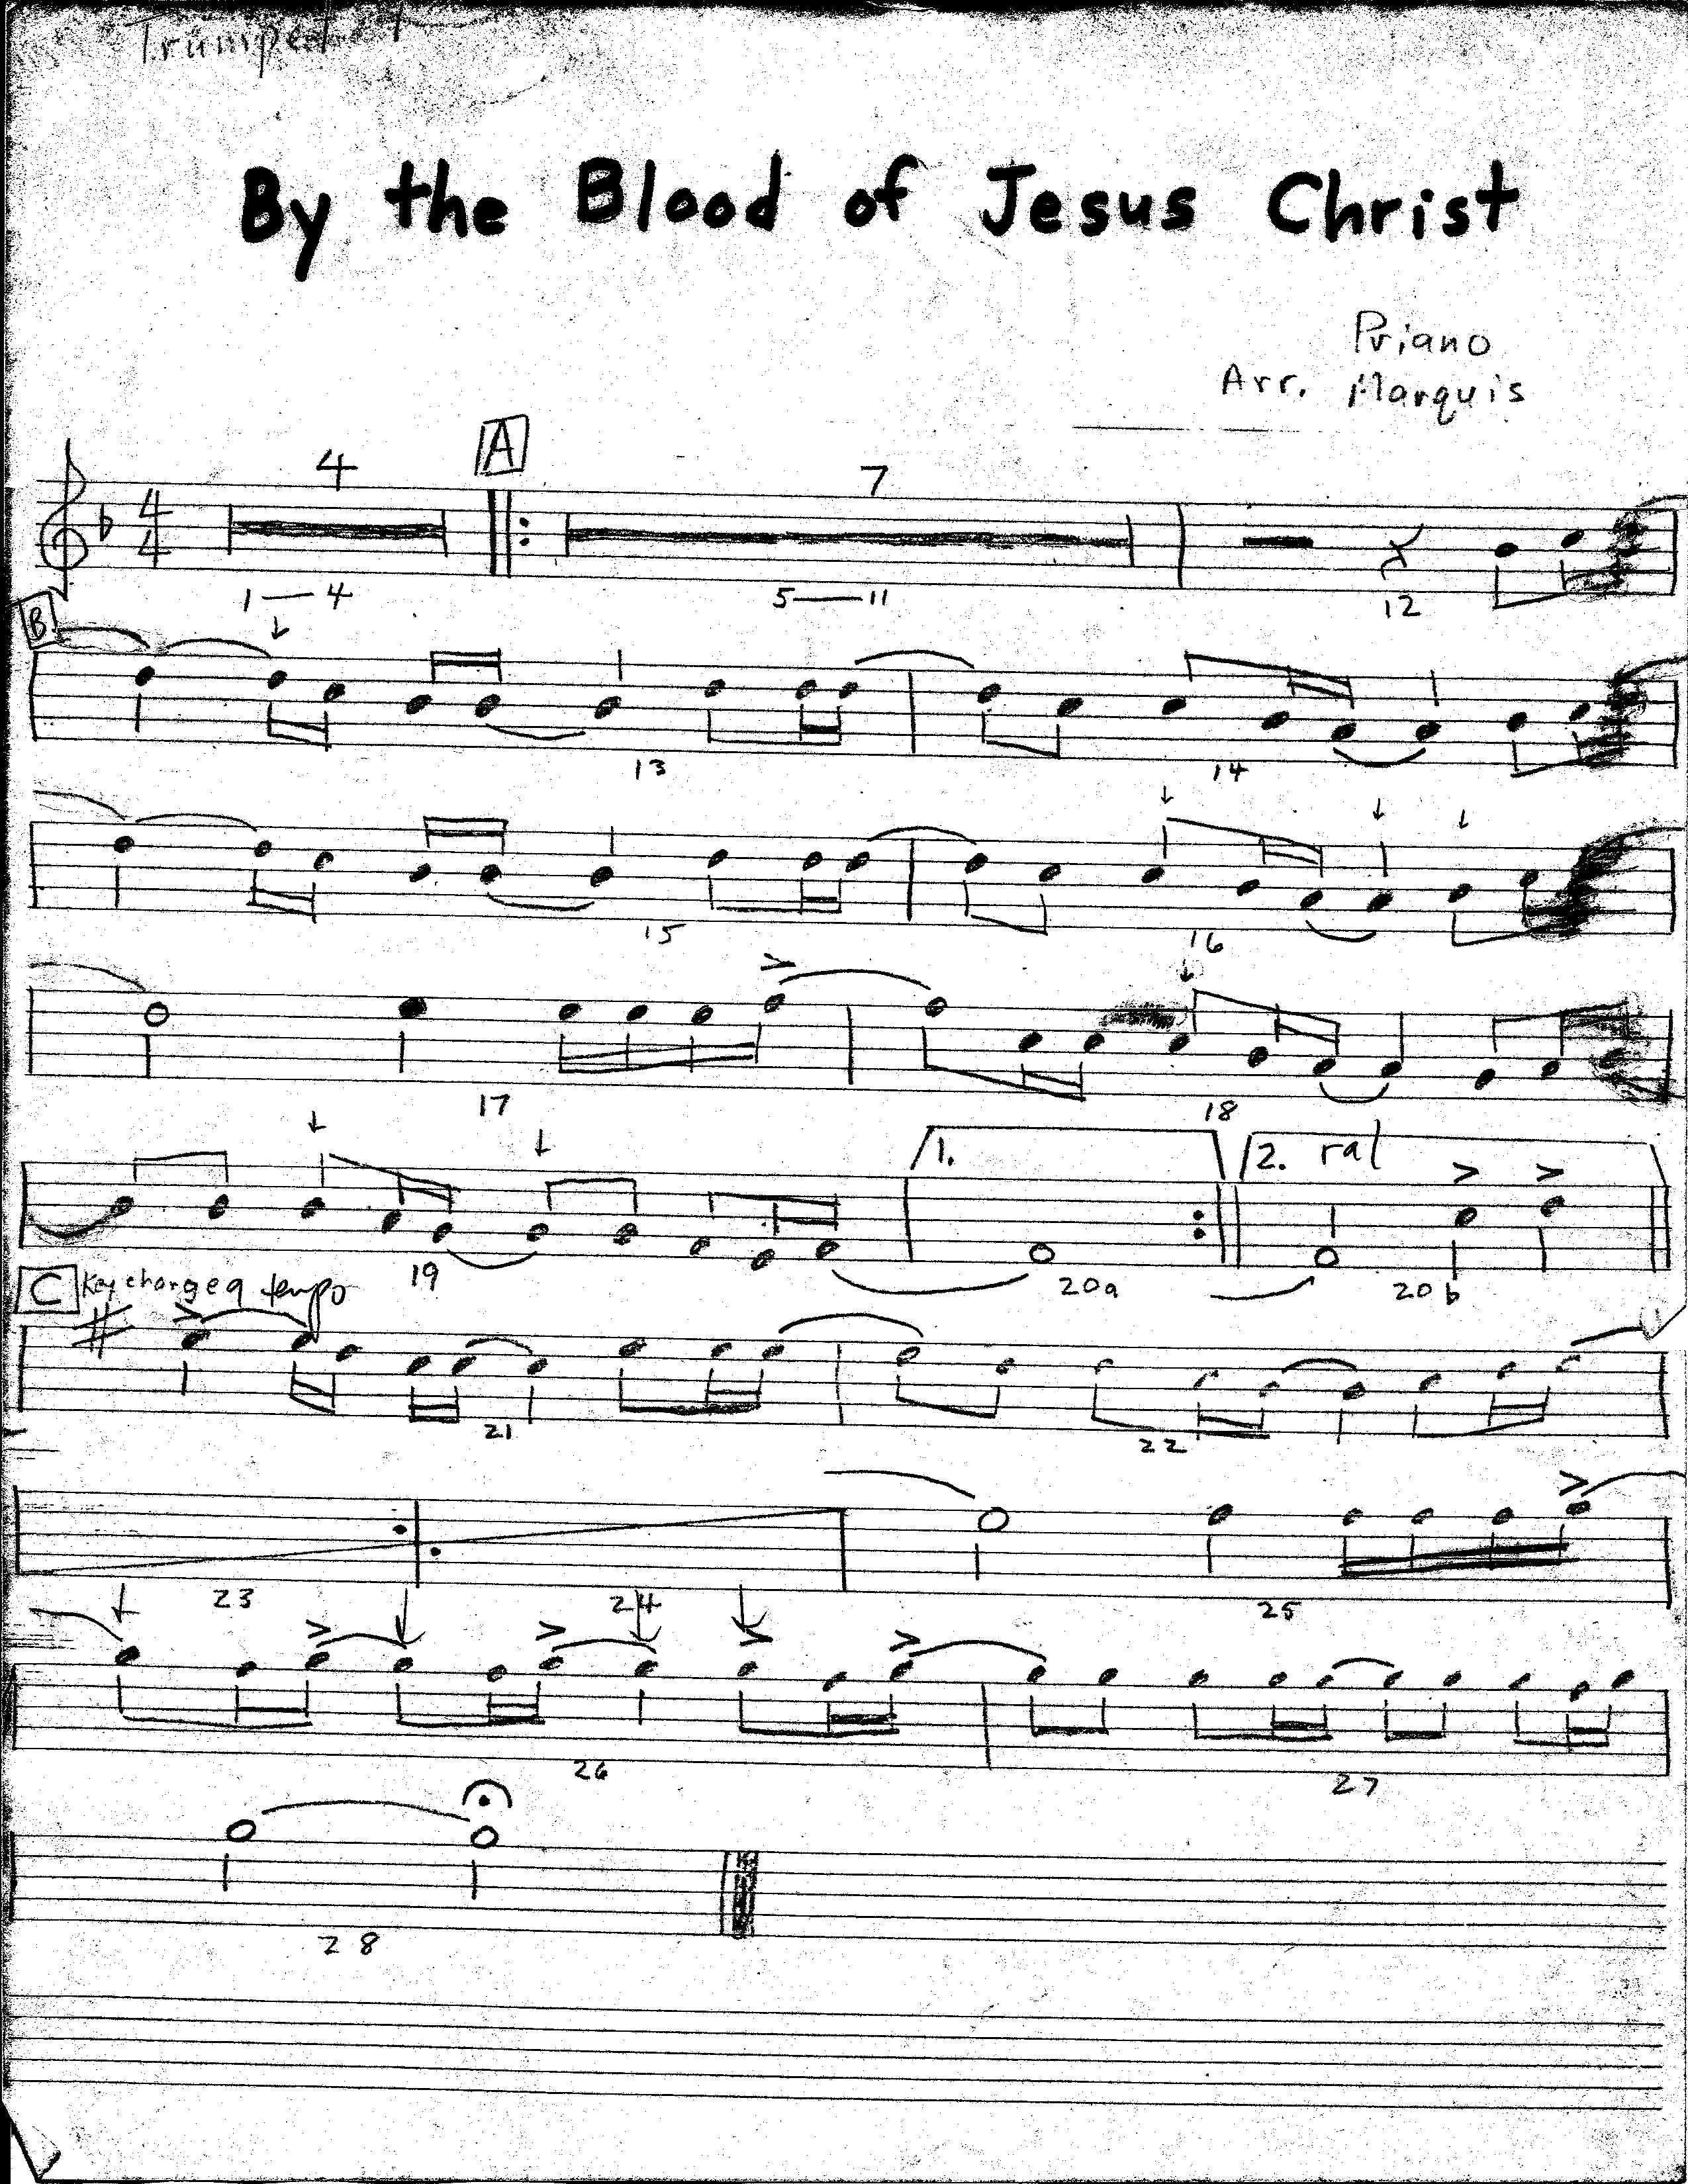 Trumpet 1
By the Blood of Jesus Christ
Priano
Arr. Marquis
4 A 7
4
4
1 — 4 5 — 11 12
B
13 14
15 16
17 18
1. 2. ral
19 20a 20b
C Key change a tempo
21 22
23 24 25
26 27
28